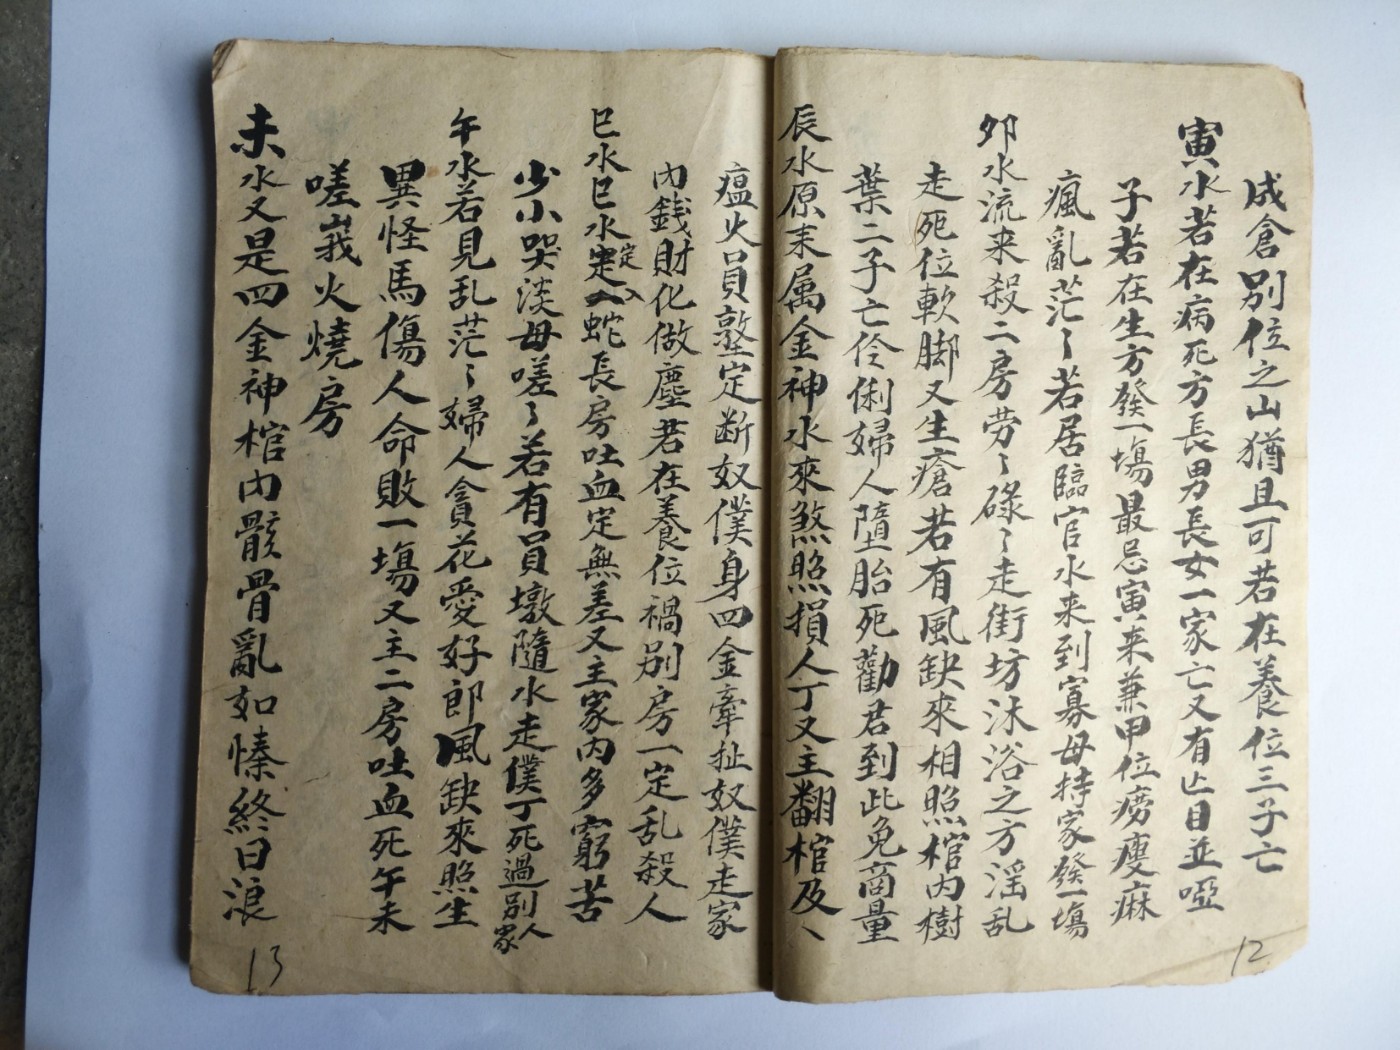 成倉別位之山猶且可若在養位三子亡
寅水若在病死方長男長女一家亡又有亡目並啞
子若在生方發一塲最忌寅来兼甲位癆瘦痳
瘋亂茫〻若居臨官水来到寡母持家發一塲
卯水流来殺二房劳〻碌〻走街坊沐浴之方淫乱
走死位軟脚又生瘡若有風缺來相照棺内樹
葉二子亡伶俐婦人墮胎死勸君到此免商量
辰水原来属金神水來煞照損人丁又主翻棺及丶
瘟火員墪定断奴僕身四金牽扯奴僕走家
内銭財化做塵若在養位禍別房一定乱殺人
巳水巳水定定入蛇長房吐血定無差又主家内多窮苦
少小哭淡母嗟〻若有員墩隨水走僕丁死過別人家
午水若見乱茫〻婦人貪花愛好郎風缺來照生
異怪馬傷人命敗一塲又主二房吐血死午未
嗟峩火燒房
未水又是四金神棺内骸骨亂如榛終日浪
12
13